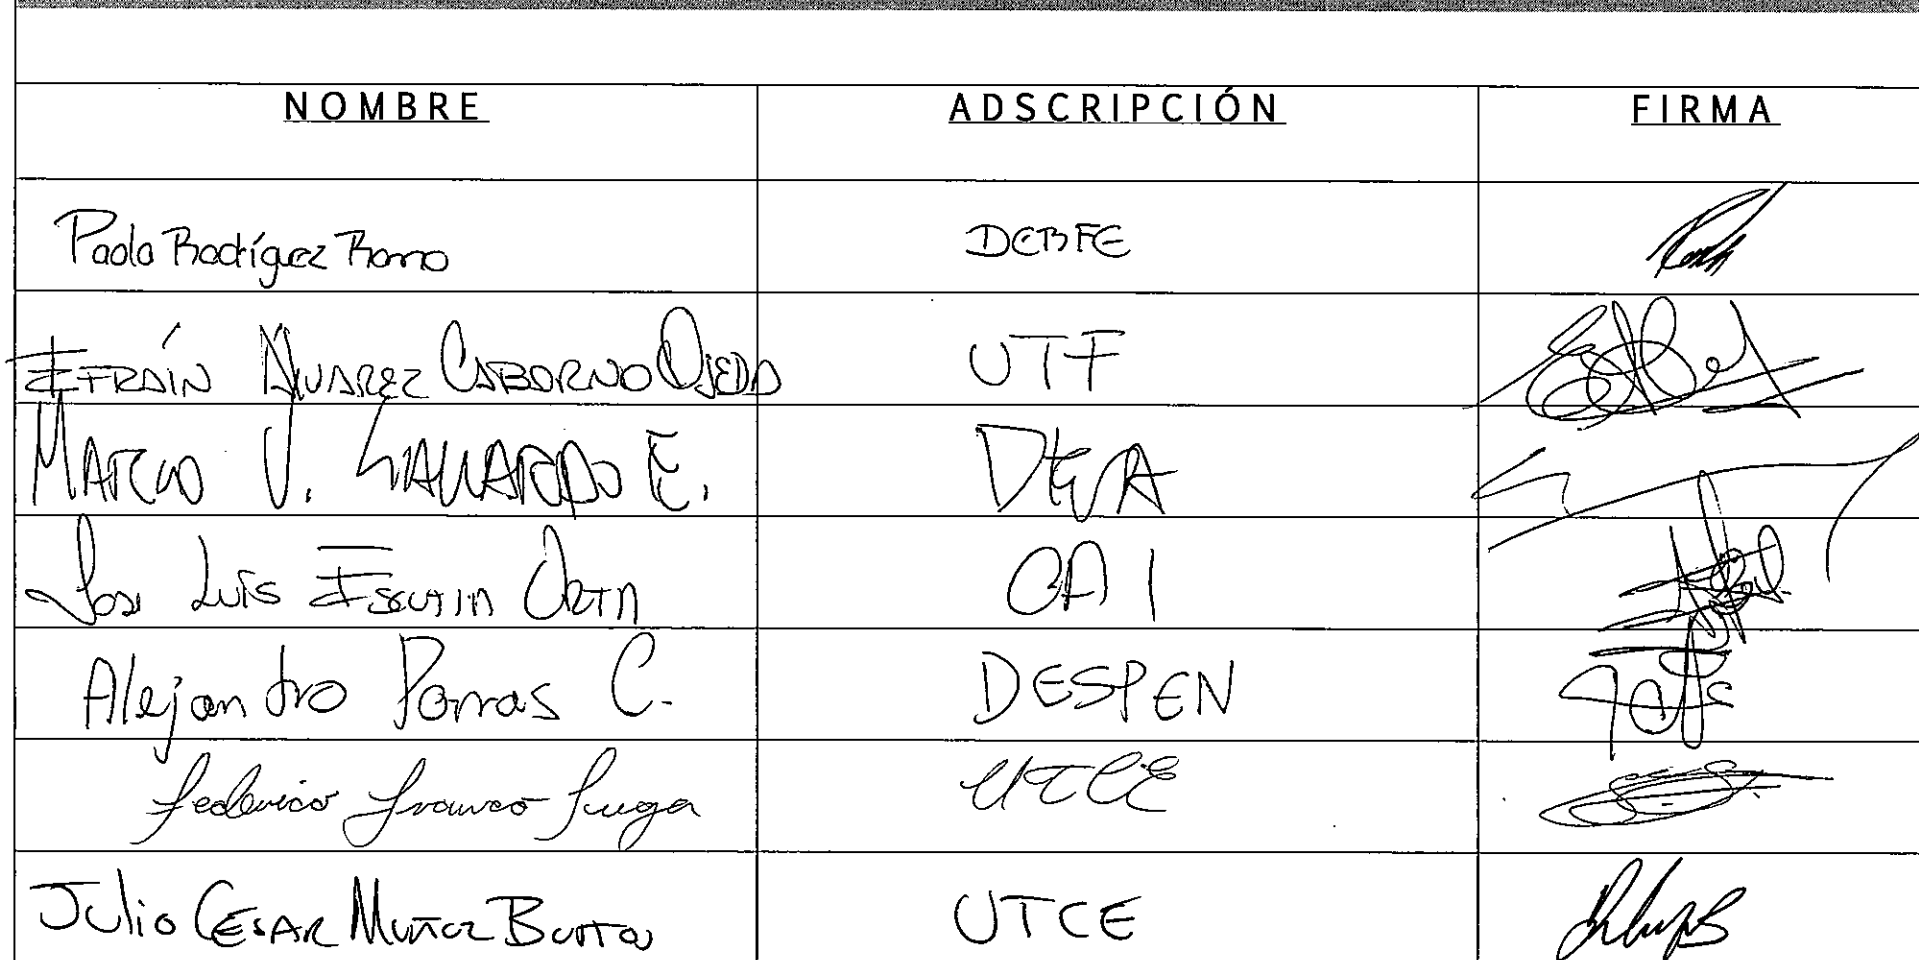 NOMBRE ADSCRIPCIÓN FIRMA
Paola Rodríguez Romo DCBFE
EFRAÍN ALVAREZ CABORNO OJEDA UTF
MARCO V. GALLARDO E. DEA
José Luis ESCUTIA ORTA CAI
Alejandro Porras C. DESPEN
Federico Franco UTCE
Julio CESAR MUÑOZ UTCE